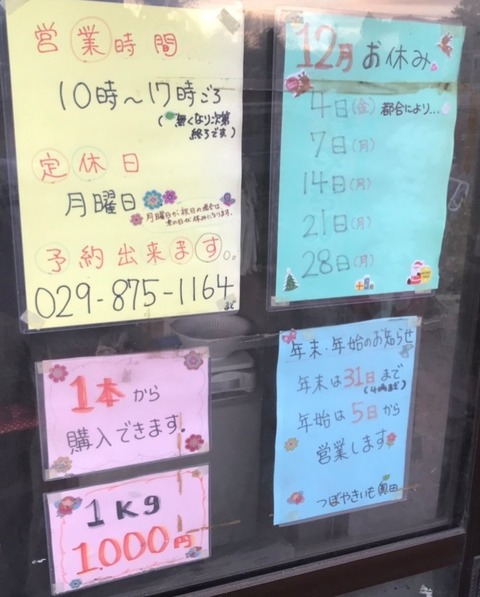 営業時間
10時～17時ごろ
(無くなり次第
終了です)
定休日
月曜日
月曜日が祝日の場合は
次の日が休みになります。
予約出来ます。
029-875-1164
まで
12月お休み
4日(金)都合により...
7日(月)
14日(月)
21日(月)
28日(月)
1本から
購入できます。
1kg
1000円
年末・年始のお知らせ
年末は31日まで
年始は5日から
営業します
つぼやきいも奥田